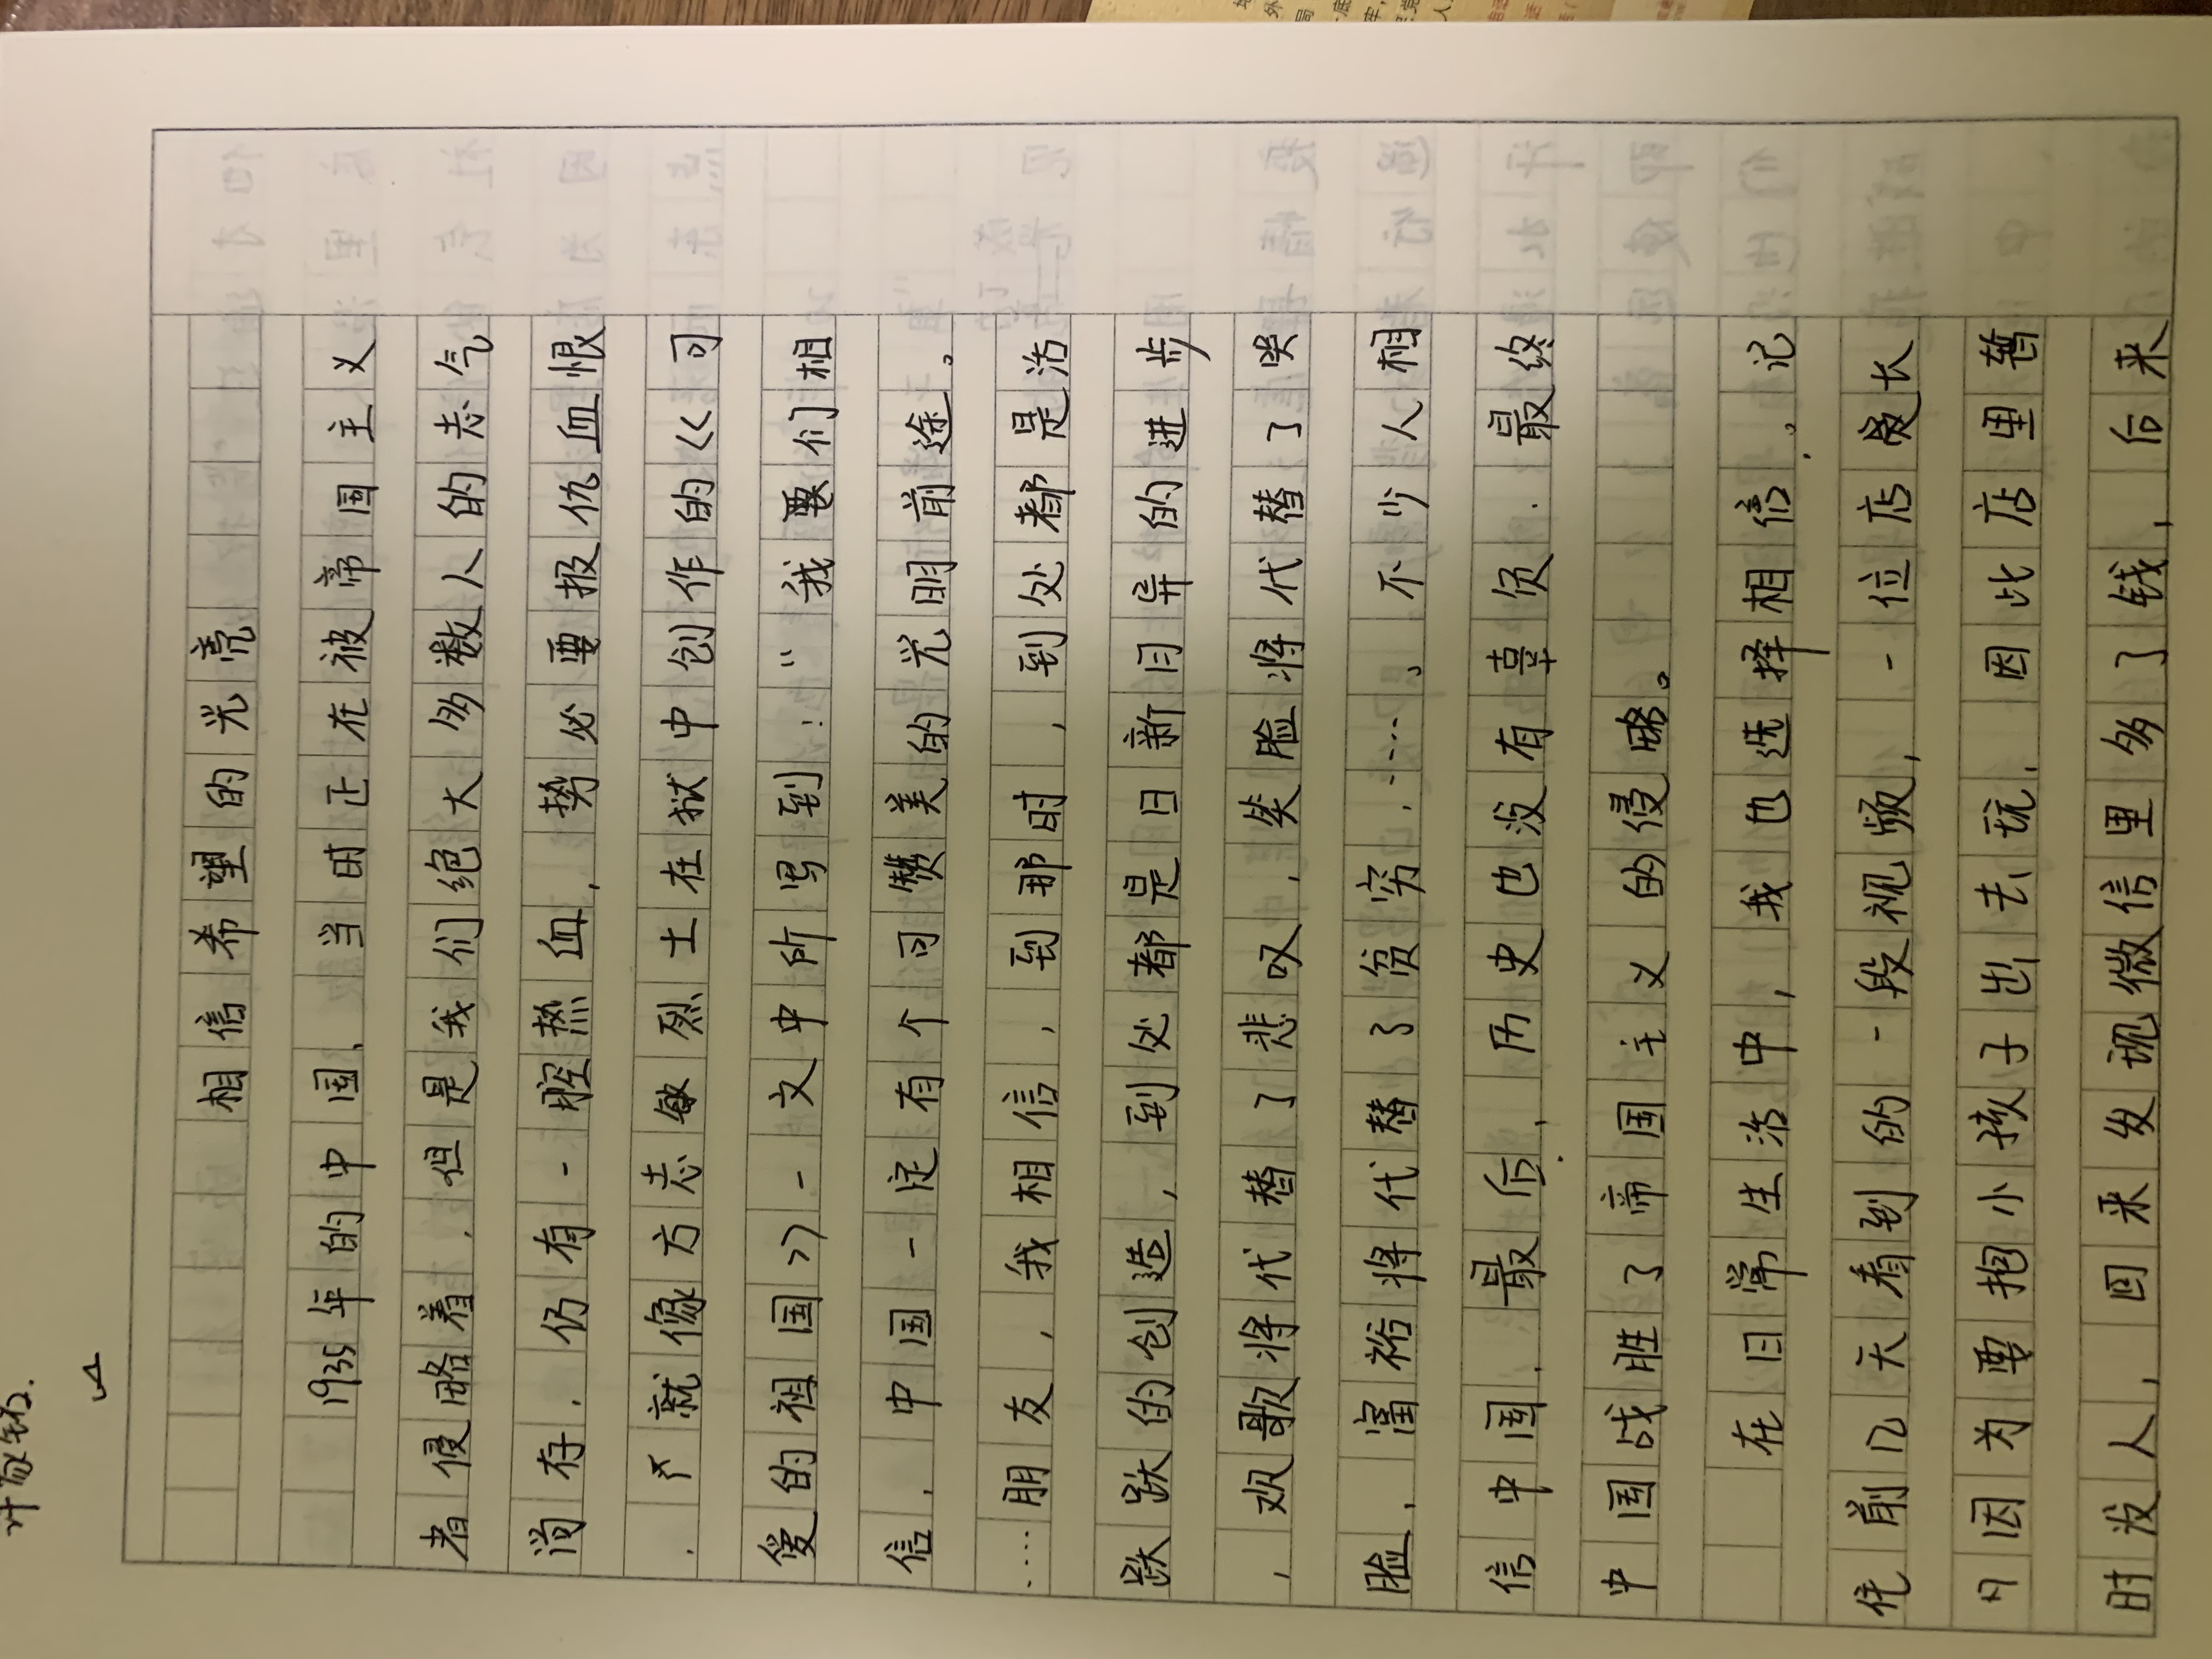 相信希望的光亮
1935年的中国、当时正在被帝国主义
者侵略着，但是我们绝大多数人的志气
尚存，仍有一腔热血，势必要报仇血恨
，就像方志敏烈士在狱中创作的《可
爱的祖国》一文中所写到：“我要们相
信，中国一定有个可赞美的光明前途。
……朋友，我相信，到那时，到处都是活
跃跃的创造，到处都是日新月异的进步
，欢歌将代替了悲叹，笑脸将代替了哭
脸，富裕将代替了贫穷，……”不少人相
信中国，最后，历史也没有辜负，最终
中国战胜了帝国主义的侵略。
在日常生活中，我也选择相信。记
凭前几天看到的一段视频，一位店长
因为要抱小孩子出去玩，因此店里暂
时没人，回来发现微信里多了钱，后来